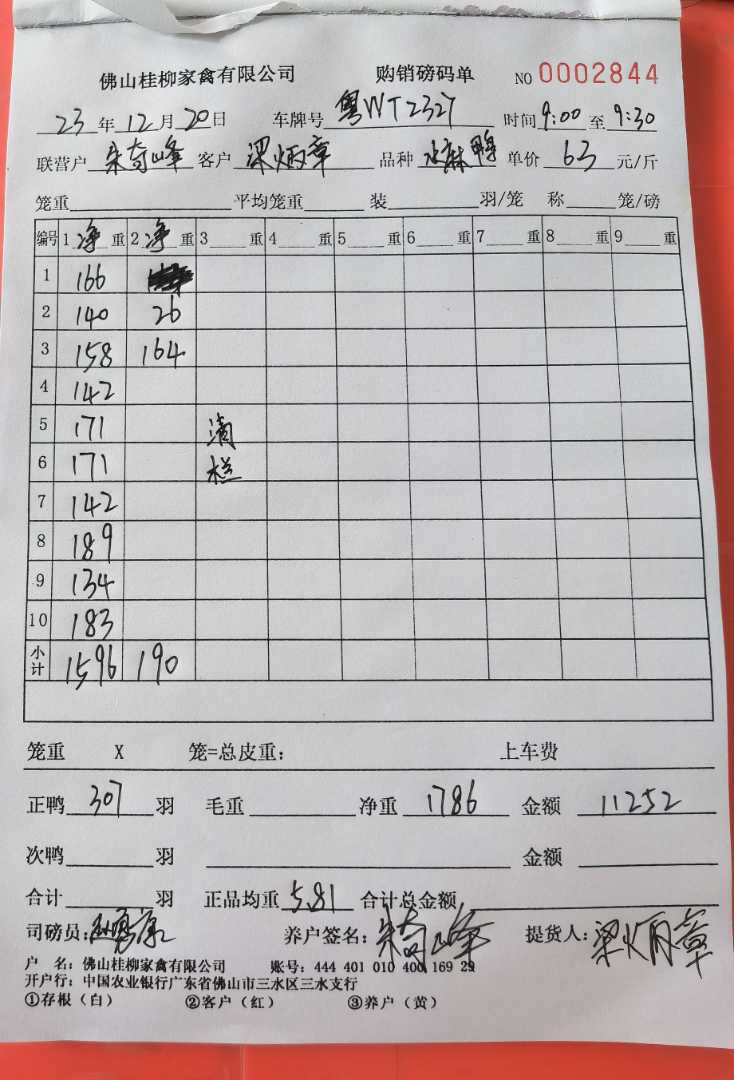 佛山桂柳家禽有限公司 购销磅码单 NO 0002844
23年12月20日 车牌号 粤WT2327 时间 9:00 至 9:30
联营户 朱奇峰 客户 梁炳章 品种 水麻鸭 单价 63 元/斤
笼重 平均笼重 装 羽/笼 称 笼/磅
编号 1 净 重 2 净 重 3 重 4 重 5 重 6 重 7 重 8 重 9 重
1 166
2 140 26
3 158 164
4 142
5 171 清
6 171 栏
7 142
8 189
9 134
10 183
小计 1596 190
笼重 X 笼=总皮重: 上车费
正鸭 307 羽 毛重 净重 1786 金额 11252
次鸭 羽 金额
合计 羽 正品均重 5.81 合计总金额
司磅员: 养户签名: 朱奇峰 提货人: 梁炳章
户 名: 佛山桂柳家禽有限公司 账号: 444 401 010 400 169 29
开户行: 中国农业银行广东省佛山市三水区三水支行
①存根(白) ②客户(红) ③养户(黄)